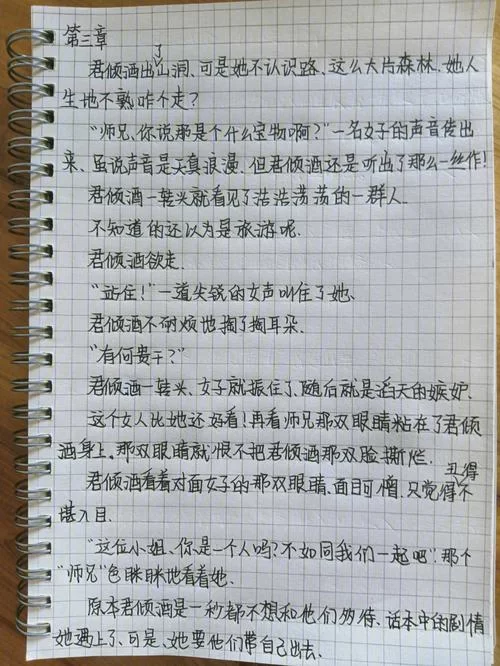 第三章
君倾酒出了山洞、可是她不认识路、这么大片森林、她人
生地不熟咋个走？
“师兄、你说那是个什么宝物啊？”一名女子的声音传出
来、虽说声音是天真浪漫、但君倾酒还是听出了那么一丝作！
君倾酒一转头就看见了浩浩荡荡的一群人.
不知道的还以为是旅游呢.
君倾酒欲走.
“站住！”一道尖锐的女声叫住了她、
君倾酒不耐烦地掏了掏耳朵.
“有何贵干？”
君倾酒一转头、女子就振住了、随后就是滔天的嫉妒.
这个女人比她还好看！再看师兄那双眼睛粘在了君倾
酒身上。那双眼睛就恨不把君倾酒那双脸撕烂.
君倾酒看着对面女子的那双眼睛、面目可憎、只觉得丑得不
堪入目.
“这位小姐、你是一个人吗？不如同我们一起吧”.那个
“师兄”色眯眯地看着她.
原本君倾酒是一秒都不想和他们多待、话本中的剧情
她遇上了、可是、她要他们带自己出去、